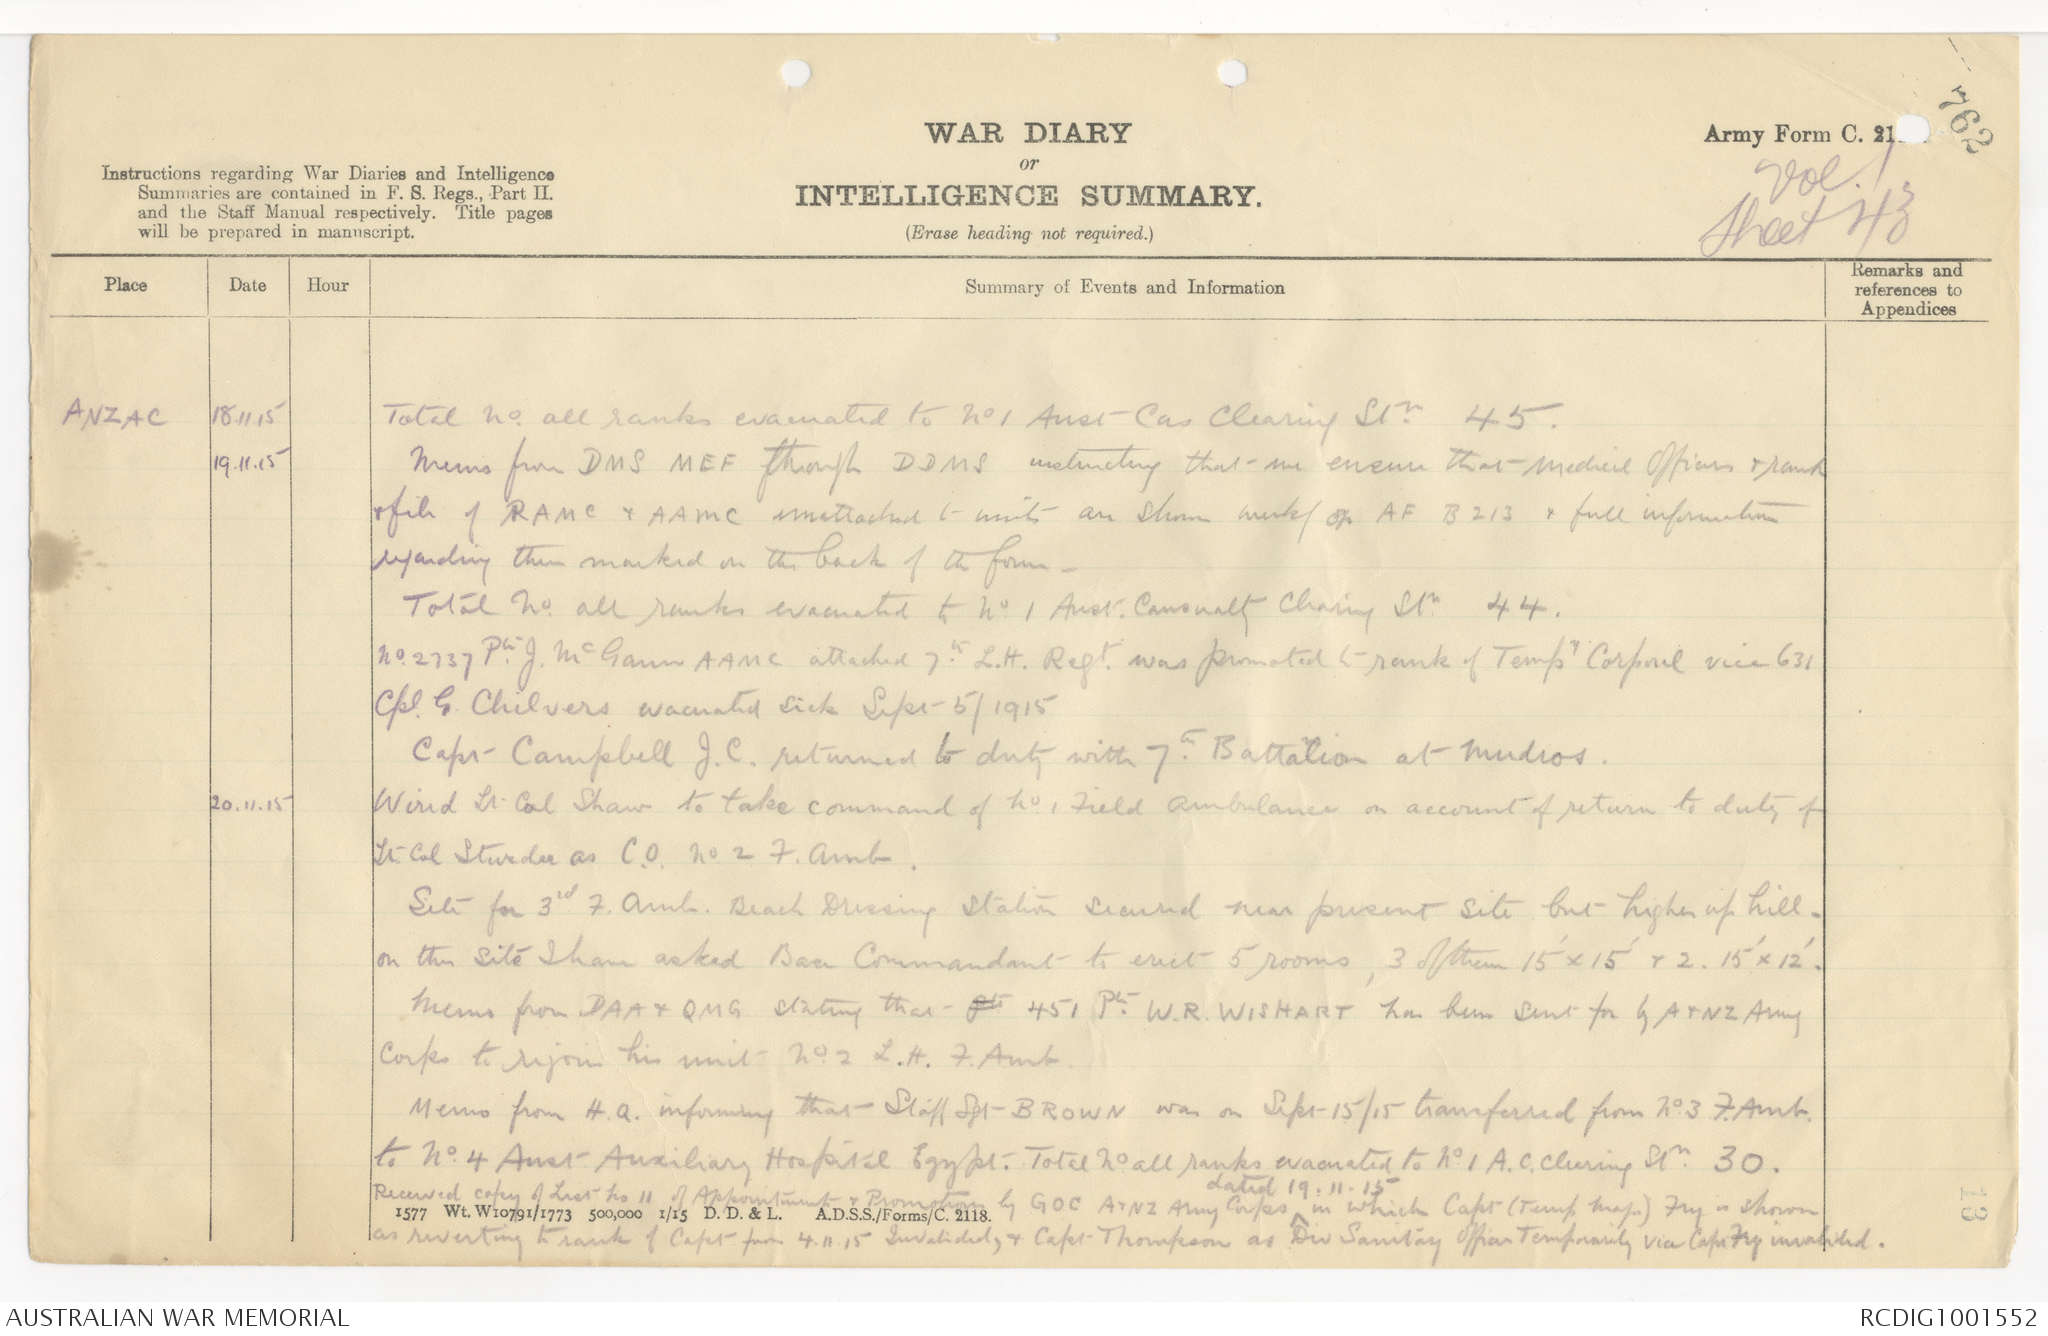 762
WAR DIARY
or
INTELLIGENCE SUMMARY.
(Erase heading not required.)
Army Form C. 21
Vol. 1
Sheet 43
Instructions regarding War Diaries and Intelligence
Summaries are contained in F. S. Regs., Part II.
and the Staff Manual respectively. Title pages
will be prepared in manuscript.
Place Date Hour Summary of Events and Information Remarks and references to Appendices
ANZAC 18.11.15 Total No. all ranks evacuated to No 1 Aust Cas Clearing Stn. 45.
19.11.15 Memo from DMS MEF through DDMS instructing that we ensure that Medical Officers & rank
& file of RAMC & AAMC unattached to units are shown weekly on AF B 213 & full information
regarding them marked on the back of the form -
Total No. all ranks evacuated to No. 1 Aust. Casualty Clearing Stn 44.
No. 2737 Pte. J. McGann AAMC attached 7th L.H. Regt. was promoted to rank of Tempy Corporal vice 631
Cpl. G. Chilvers evacuated sick Sept 5/1915
Capt Campbell J.C. returned to duty with 7th Battalion at Mudros.
20.11.15 Wired Lt Col Shaw to take command of No. 1 Field Ambulance on account of return to duty of
Lt. Col Sturdee as C.O. No 2 F. Amb.
Site for 3rd F. Amb. Beach Dressing Station secured near present site but higher up hill -
on this site I have asked Base Commandant to erect 5 rooms, 3 of them 15' x 15' & 2. 15' x 12'.
Memo from DAA & QMG stating that 451 Pte. W.R. WISHART has been sent for by A & NZ Army
Corps to rejoin his unit No. 2 L.H. F. Amb.
Memo from H.Q. informing that Staff Sgt BROWN was on Sept 15/15 transferred from No 3 F. Amb.
to No. 4 Aust Auxiliary Hospital Egypt. Total No all ranks evacuated to No 1 A.C. Clearing Stn. 30.
Received copy of List No 11 of Appointments & Promotions by GOC A & NZ Army Corps dated 19.11.15 in which Capt (Temp Maj) Fry is shown
1577 Wt. W10791/1773 500,000 1/15 D. D. & L. A.D.S.S./Forms/C. 2118.
as reverting to rank of Capt from 4.11.15 Invalided, & Capt Thompson as Div Sanitary Officer Temporarily vice Capt Fry invalided.
13
AUSTRALIAN WAR MEMORIAL
RCDIG1001552